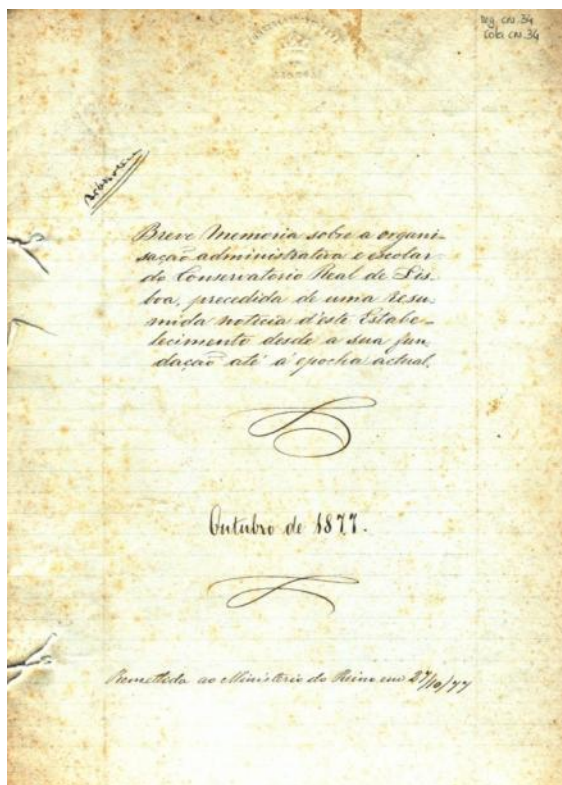 Reg. CN.34
Cota CN.34
Breve Memoria sobre a organi-
sação administrativa e escolar
do Conservatorio Real de Lis-
boa, precedida de uma resu-
mida noticia d'este Estabe-
lecimento desde a sua fun
dação até á epocha actual.
Outubro de 1877.
Remettida ao Ministerio do Reino em 27/10/77